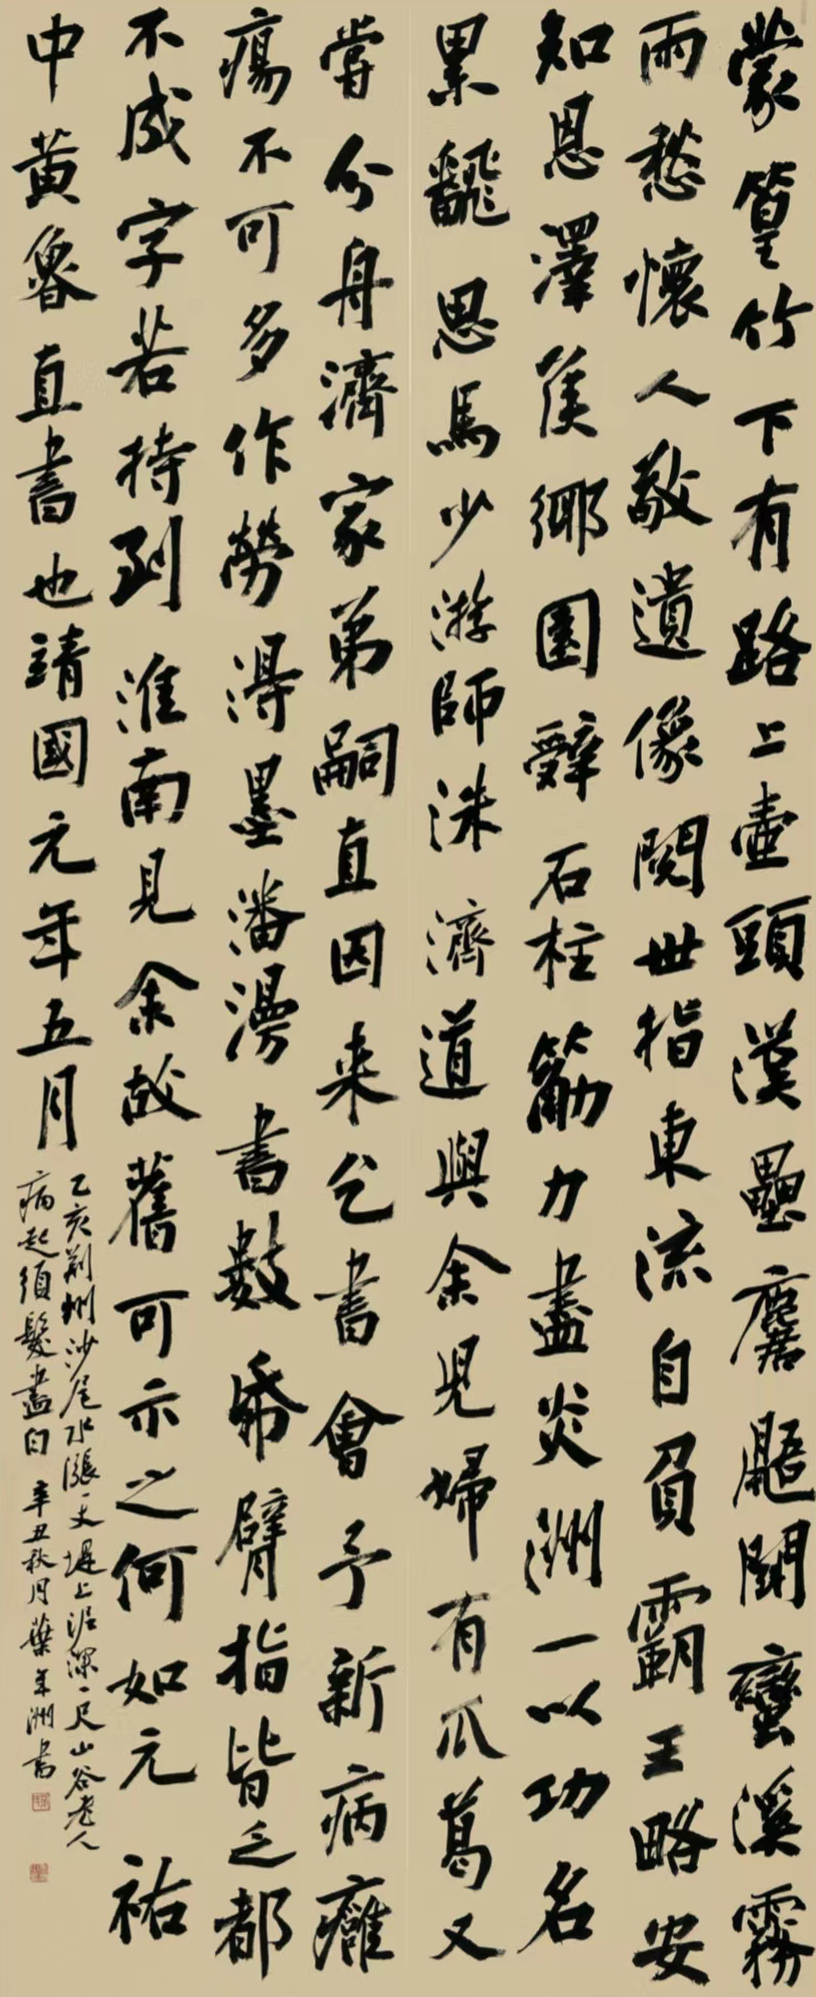 蒙篁竹下有路上壺頭漢壘麏鼯鬪蠻溪霧
雨愁懷人敬遺像閱世指東流自負霸王略安
知恩澤侯鄉園辭石柱筋力盡炎洲一以功名
累飜思馬少游師洙濟道與余兒婦有瓜葛又
嘗分舟濟家弟嗣直因来乞書會予新病癰
瘍不可多作勞得墨瀋漫書數紙臂指皆乏都
不成字若持到淮南見余故舊可示之何如元祐
中黃魯直書也靖國元年五月
乙亥荊州沙尾水漲一丈堤上泥深一尺山谷老人
病起須髮盡白 辛丑秋月葉年洲書